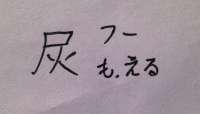 フー
も.える